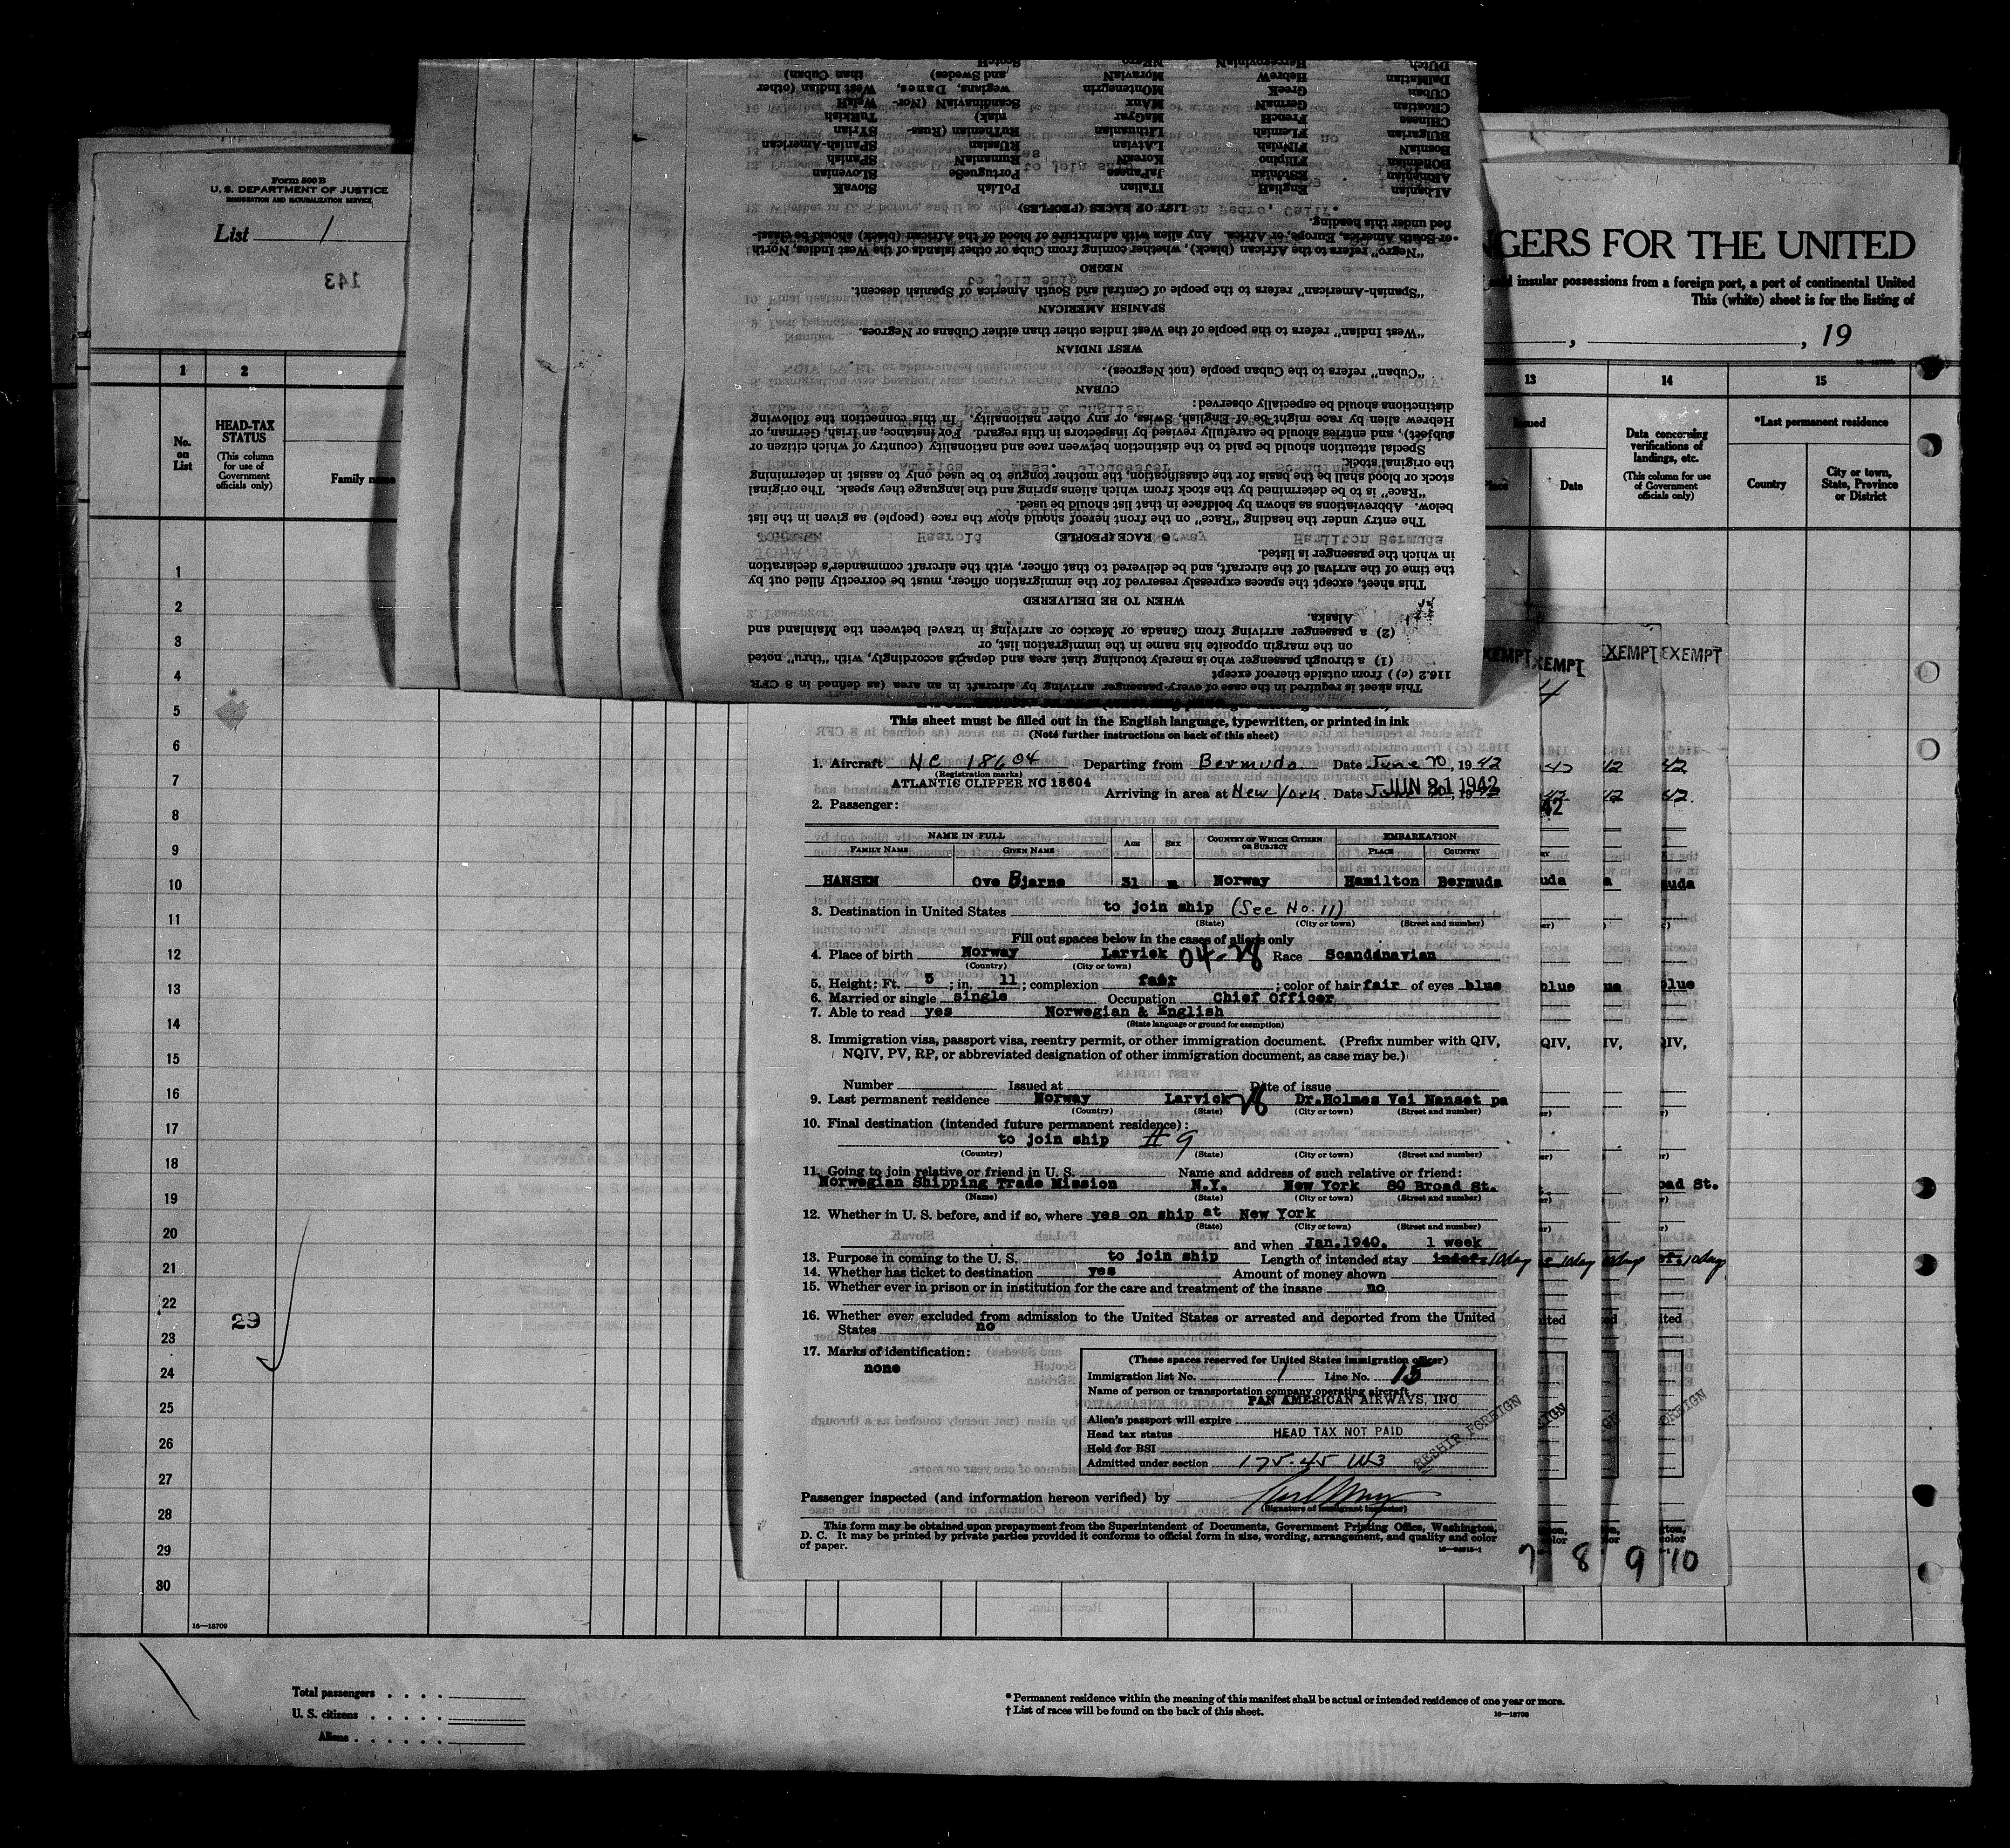 Form 500 B
U. S. DEPARTMENT OF JUSTICE
IMMIGRATION AND NATURALIZATION SERVICE
List 1
143
GERS FOR THE UNITED
insular possessions from a foreign port, a port of continental United
This (white) sheet is for the listing of
, , 19
1 2 13 14 15
No. on List
HEAD-TAX STATUS
(This column for use of Government officials only)
Family name
Issued
Place
Date
Data concerning verifications of landings, etc.
(This column for use of Government officials only)
*Last permanent residence
Country
City or town, State, Province or District
1
2
3
4
5
6
7
8
9
10
11
12
13
14
15
16
17
18
19
20
21
22
23
24
25
26
27
28
29
30
29
16—18709
This sheet is required in the case of every passenger arriving by aircraft in an area (as defined in 8 CFR
116.2 (c)) from outside thereof except
(1) a through passenger who is merely touching that area and departs accordingly, with "thru" noted
on the margin opposite his name in the immigration list, or
(2) a passenger arriving from Canada or Mexico or arriving in travel between the Mainland and
Alaska.
WHEN TO BE DELIVERED
This sheet, except the spaces expressly reserved for the immigration officer, must be correctly filled out by
the time of the arrival of the aircraft, and be delivered to that officer, with the aircraft commander's declaration
in which the passenger is listed.
RACE (PEOPLE)
The entry under the heading "Race" on the front hereof should show the race (people) as given in the list
below. Abbreviations as shown by boldface in that list should be used.
"Race" is to be determined by the stock from which aliens spring and the language they speak. The original
stock or blood shall be the basis for the classification, the mother tongue to be used only to assist in determining
the original stock.
Special attention should be paid to the distinction between race and nationality (country of which citizen or
subject), and entries should be carefully revised by inspectors in this regard. For instance, an Irish, German, or
Hebrew alien by race might be of English, Swiss, or any other nationality. In this connection the following
distinctions should be especially observed:
CUBAN
"Cuban" refers to the Cuban people (not Negroes).
WEST INDIAN
"West Indian" refers to the people of the West Indies other than either Cubans or Negroes.
SPANISH AMERICAN
"Spanish-American" refers to the people of Central and South America of Spanish descent.
NEGRO
"Negro" refers to the African (black), whether coming from Cuba or other islands of the West Indies, North
or South America, Europe, or Africa. Any alien with admixture of blood of the African (black) should be classi-
fied under this heading.
LIST OF RACES (PEOPLES)
AlbaniaN EnglisH ITalian PoLish SlovaK
ARMenian EStonian JaPanese PortugueSe SLOvenian
BOHemian FIlipino KoreaN RumaniaN SPanish
BosniaN FINnish LATvian RUSsian SPAnish-American
BUlgarian FLemish LIThuanian RuTHenian (Russ- SYrian
CHInese FrencH MaGyar niak) TuRkish
CROatian GermaN MAnx Scandinavian (Nor- WelsH
CUban GreeK MOntenegrin wegians, Danes, West Indian (other
DalMatian HebreW MoraviaN and Swedes) than Cuban)
DUtcH HerzegoviniaN NEgro ScotcH
This sheet must be filled out in the English language, typewritten, or printed in ink
(Note further instructions on back of this sheet)
1. Aircraft NC 18604 Departing from Bermuda Date June 20, 1942
(Registration marks)
ATLANTIC CLIPPER NC 18604
Arriving in area at New York. Date JUN 21 1942
2. Passenger:
NAME IN FULL AGE SEX COUNTRY OF WHICH CITIZEN OR SUBJECT EMBARKATION
FAMILY NAME GIVEN NAME PLACE COUNTRY
HANSEN Ove Bjarne 31 m Norway Hamilton Bermuda
3. Destination in United States to join ship (See No. 11)
(State) (City or town) (Street and number)
Fill out spaces below in the cases of aliens only
4. Place of birth Norway Larvick 04-28 Race Scandinavian
(Country) (City or town)
5. Height: Ft. 5 ; in. 11 ; complexion fair ; color of hair fair of eyes blue
6. Married or single single Occupation Chief Officer
7. Able to read yes Norwegian & English
(State language or ground for exemption)
8. Immigration visa, passport visa, reentry permit, or other immigration document. (Prefix number with QIV,
NQIV, PV, RP, or abbreviated designation of other immigration document, as case may be.)
Number Issued at Date of issue
9. Last permanent residence Norway Larvick 28 Dr.Holmes Vei Nanset pa
(Country) (State) (City or town) (Street and number)
10. Final destination (intended future permanent residence):
to join ship #9
(Country) (State) (City or town) (Street and number)
11. Going to join relative or friend in U. S. Name and address of such relative or friend:
Norwegian Shipping Trade Mission N.Y. New York 80 Broad St.
(Name) (State) (City or town) (Street and number)
12. Whether in U. S. before, and if so, where yes on ship at New York
(State) (City or town) (Street and number)
and when Jan.1940. 1 week
13. Purpose in coming to the U. S. to join ship Length of intended stay indef. 10day
14. Whether has ticket to destination yes Amount of money shown
15. Whether ever in prison or in institution for the care and treatment of the insane no
16. Whether ever excluded from admission to the United States or arrested and deported from the United
States no
17. Marks of identification:
none
(These spaces reserved for United States immigration officer)
Immigration list No. 1 Line No. 15
Name of person or transportation company operating aircraft
PAN AMERICAN AIRWAYS, INC
Alien's passport will expire
Head tax status HEAD TAX NOT PAID
Held for BSI
Admitted under section 175.45 W3
RESHIP FOREIGN
Passenger inspected (and information hereon verified) by
(Signature of immigrant inspector)
This form may be obtained upon prepayment from the Superintendent of Documents, Government Printing Office, Washington,
D. C. It may be printed by private parties provided it conforms to official form in size, wording, arrangement, and quality and color
of paper.
7 8 9 10
EXEMPT EXEMPT EXEMPT EXEMPT
Total passengers
U. S. citizens
Aliens
* Permanent residence within the meaning of this manifest shall be actual or intended residence of one year or more.
† List of races will be found on the back of this sheet.
16—18709